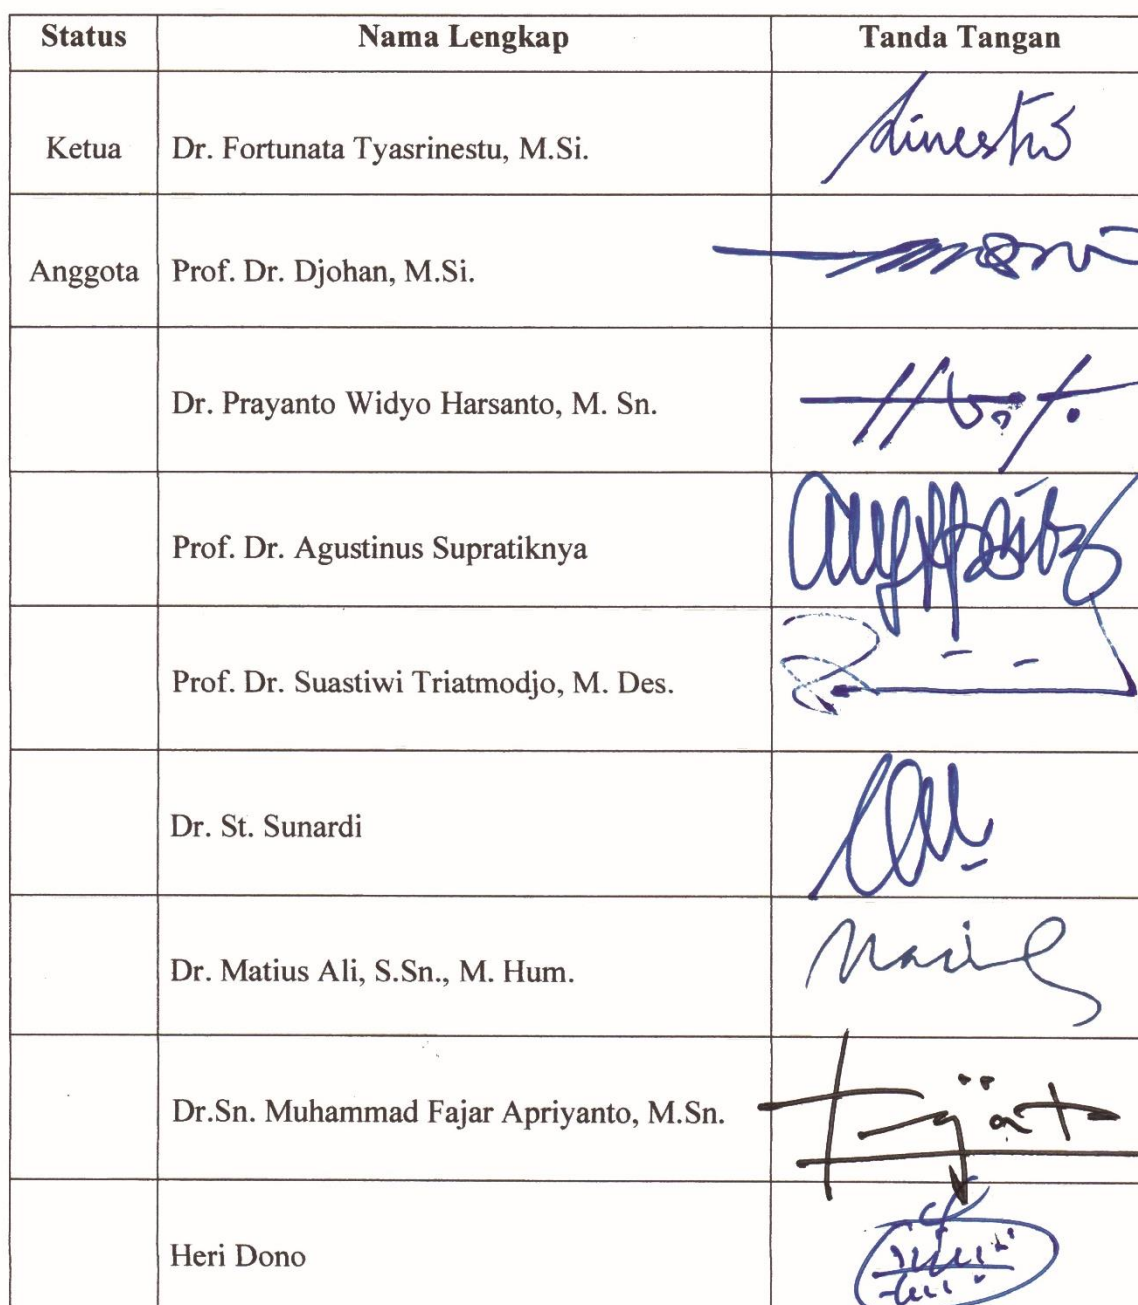 Status Nama Lengkap Tanda Tangan
Ketua Dr. Fortunata Tyasrinestu, M.Si.
Anggota Prof. Dr. Djohan, M.Si.
Dr. Prayanto Widyo Harsanto, M. Sn.
Prof. Dr. Agustinus Supratiknya
Prof. Dr. Suastiwi Triatmodjo, M. Des.
Dr. St. Sunardi
Dr. Matius Ali, S.Sn., M. Hum.
Dr.Sn. Muhammad Fajar Apriyanto, M.Sn.
Heri Dono